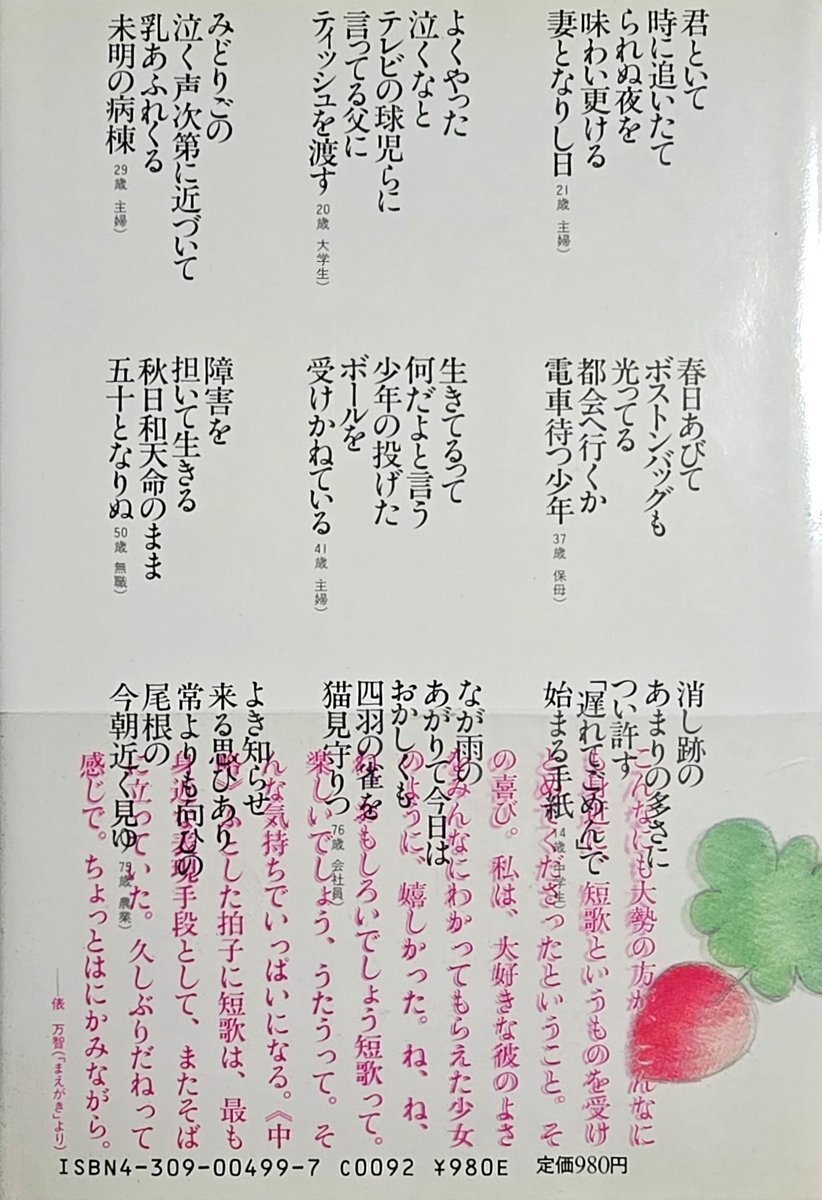 君といて
時に追いたて
られぬ夜を
味わい更ける
妻となりし日 21歳 主婦）
よくやった
泣くなと
テレビの球児らに
言ってる父に
ティッシュを渡す 20歳 大学生）
みどりごの
泣く声次第に近づいて
乳あふれくる
未明の病棟 29歳 主婦）
春日あびて
ボストンバッグも
光ってる
都会へ行くか
電車待つ少年 37歳 保母）
生きてるって
何だよと言う
少年の投げた
ボールを
受けかねている 41歳 主婦）
障害を
担いて生きる
秋日和天命のまま
五十となりぬ 50歳 無職）
消し跡の
あまりの多さに
つい許す
「遅れてごめん」で
始まる手紙 14歳 中学生）
なが雨の
あがりて今日は
おかしくも
四羽の雀を
猫見守りつ 76歳 会社員）
よき知らせ
来る思ひあり
常よりも向ひの
尾根の
今朝近く見ゆ 79歳 農業）
こんなにも大勢の方が、こんなに
も身近に短歌というものを受け
とめてくださったということ。そ
の喜び。私は、大好きな彼のよさ
みんなにわかってもらえた少女
のように、嬉しかった。ね、ね、
ね、おもしろいでしょう短歌って。
楽しいでしょう、うたうって。そ
んな気持ちでいっぱいになる。《中
ふとした拍子に短歌は、最も
身近な表現手段として、またそば
に立っていた。久しぶりだねって
感じで。ちょっとはにかみながら。
——俵 万智（「まえがき」より）
ISBN4-309-00499-7 C0092 ¥980E 定価980円